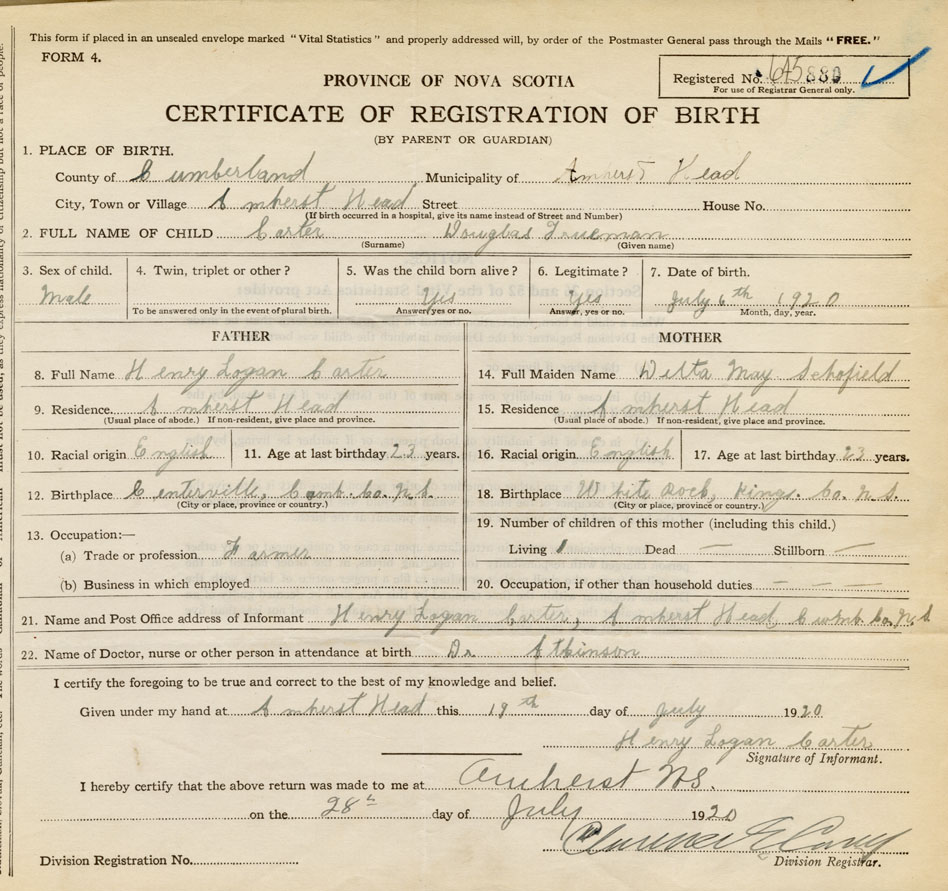 This form if placed in an unsealed envelope marked "Vital Statistics" and properly addressed will, by order of the Postmaster General pass through the Mails "FREE."
FORM 4.
PROVINCE OF NOVA SCOTIA
Registered No.
For use of Registrar General only.
CERTIFICATE OF REGISTRATION OF BIRTH
(BY PARENT OR GUARDIAN)
1. PLACE OF BIRTH.
County of Cumberland Municipality of Amherst Head
City, Town or Village Amherst Head Street House No.
(If birth occurred in a hospital, give its name instead of Street and Number)
2. FULL NAME OF CHILD Carter Douglas Trueman
(Surname) (Given name)
3. Sex of child. 4. Twin, triplet or other? 5. Was the child born alive? 6. Legitimate? 7. Date of birth.
Male Yes Yes July 6th 1920
To be answered only in the event of plural birth. Answer, yes or no. Answer, yes or no. Month, day, year.
FATHER MOTHER
8. Full Name Henry Logan Carter 14. Full Maiden Name May Schofield
9. Residence. Amherst Head 15. Residence Amherst Head
(Usual place of abode.) If non-resident, give place and province. (Usual place of abode.) If non-resident, give place and province.
10. Racial origin English 11. Age at last birthday 23 years. 16. Racial origin English 17. Age at last birthday 23 years.
12. Birthplace Centerville, Cumb. Co. N.S. 18. Birthplace White Rock, Kings. Co. N.S.
(City or place, province or country.) (City or place, province or country.)
13. Occupation:— 19. Number of children of this mother (including this child.)
(a) Trade or profession Farmer Living 1 Dead — Stillborn —
(b) Business in which employed 20. Occupation, if other than household duties — — —
21. Name and Post Office address of Informant Henry Logan Carter, Amherst Head, Cumb. Co. N.S
22. Name of Doctor, nurse or other person in attendance at birth Dr Atkinson
I certify the foregoing to be true and correct to the best of my knowledge and belief.
Given under my hand at Amherst Head this 19th day of July 1920
Henry Logan Carter
Signature of Informant.
I hereby certify that the above return was made to me at Amherst N.S.
on the 28th day of July 1920
Clarence E
Division Registration No. Division Registrar.